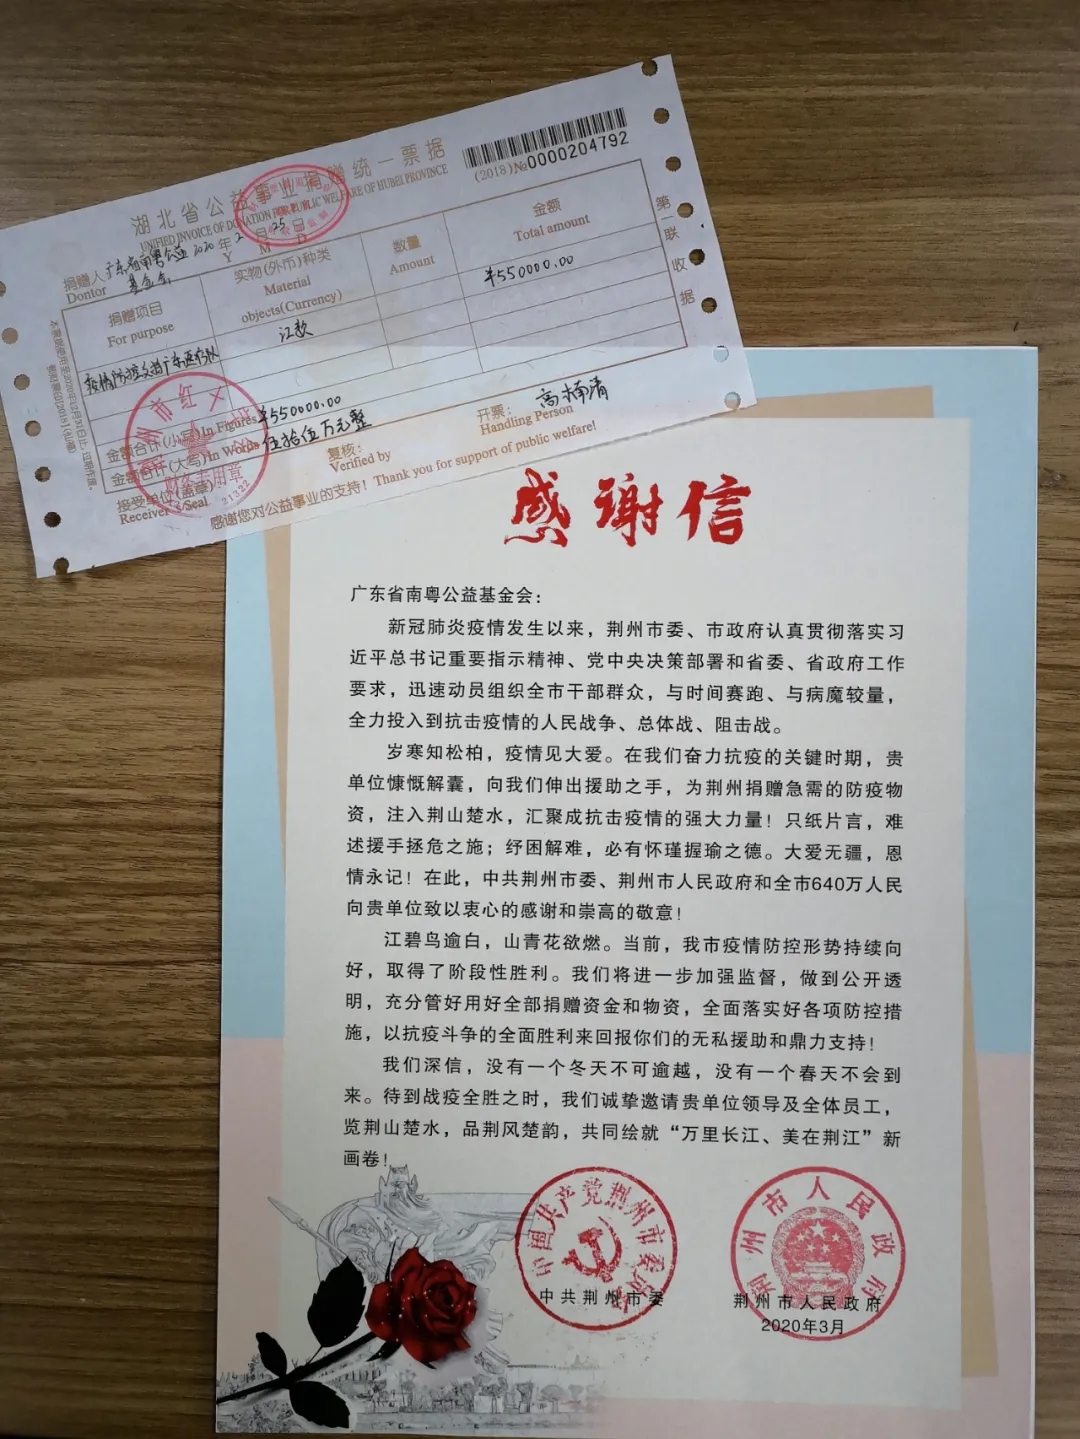 湖北省公益事业捐赠统一票据
UNIFIED INVOICE OF DONATION FOR PUBLIC WELFARE OF HUBEI PROVINCE
(2018) №0000204792
捐赠人 广东省南粤公益基金会 2020 年 2 月 25 日
Dontor Y M D
捐赠项目 实物(外币)种类 数量 金额
For purpose Material objects(Currency) Amount Total amount
疫情防控支持广东医疗队 汇款 ¥550000.00
金额合计(小写)In Figures ¥550000.00
金额合计(大写)In Words 伍拾伍万元整
接受单位(盖章) 复核: 开票: 高楠清
Receiver's/Seal Verified by Handling Person
感谢您对公益事业的支持! Thank you for support of public welfare!
第一联 收据
财务专用章
21322
感谢信
广东省南粤公益基金会:
新冠肺炎疫情发生以来,荆州市委、市政府认真贯彻落实习
近平总书记重要指示精神、党中央决策部署和省委、省政府工作
要求,迅速动员组织全市干部群众,与时间赛跑、与病魔较量,
全力投入到抗击疫情的人民战争、总体战、阻击战。
岁寒知松柏,疫情见大爱。在我们奋力抗疫的关键时期,贵
单位慷慨解囊,向我们伸出援助之手,为荆州捐赠急需的防疫物
资,注入荆山楚水,汇聚成抗击疫情的强大力量!只纸片言,难
述援手拯危之施;纾困解难,必有怀瑾握瑜之德。大爱无疆,恩
情永记!在此,中共荆州市委、荆州市人民政府和全市640万人民
向贵单位致以衷心的感谢和崇高的敬意!
江碧鸟逾白,山青花欲燃。当前,我市疫情防控形势持续向
好,取得了阶段性胜利。我们将进一步加强监督,做到公开透
明,充分管好用好全部捐赠资金和物资,全面落实好各项防控措
施,以抗疫斗争的全面胜利来回报你们的无私援助和鼎力支持!
我们深信,没有一个冬天不可逾越,没有一个春天不会到
来。待到战疫全胜之时,我们诚挚邀请贵单位领导及全体员工,
览荆山楚水,品荆风楚韵,共同绘就“万里长江、美在荆江”新
画卷!
中国共产党荆州市委员会
荆州市人民政府
中共荆州市委
荆州市人民政府
2020年3月